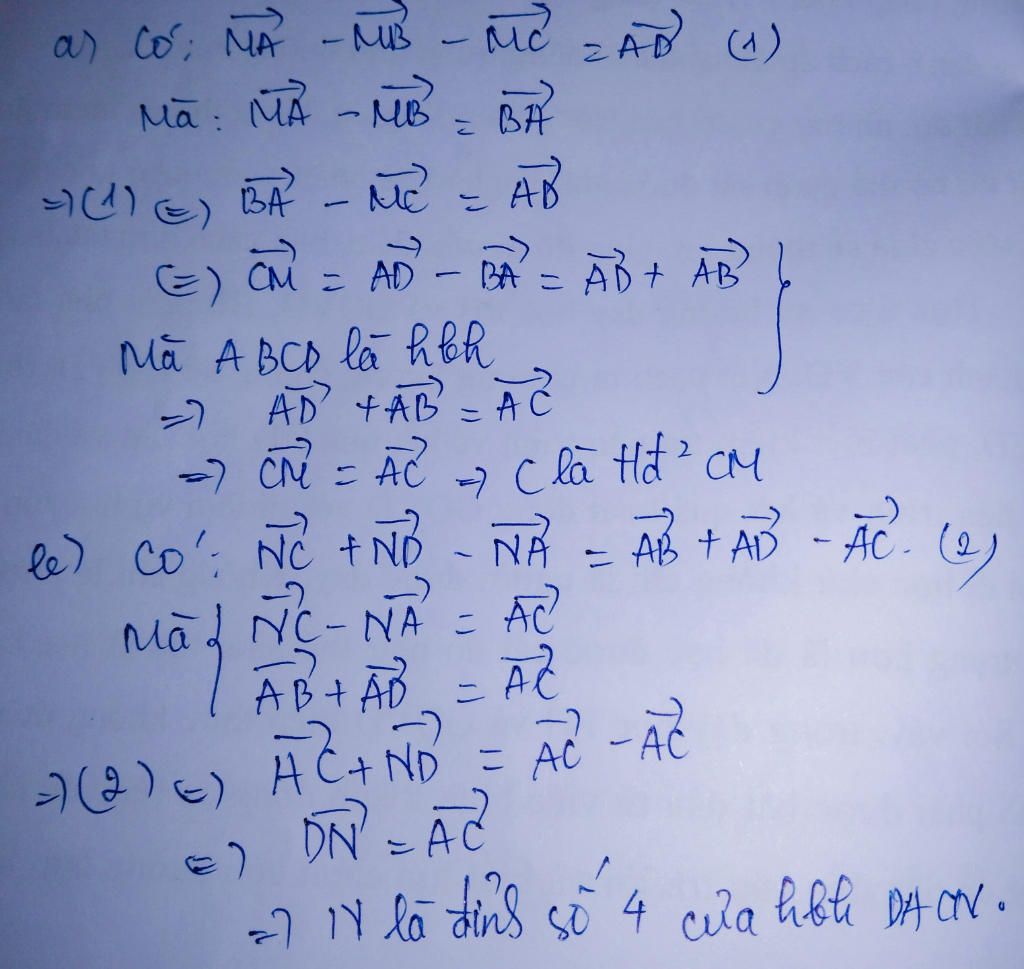 a) Có: $\overrightarrow{MA} - \overrightarrow{MB} - \overrightarrow{MC} = \overrightarrow{AD}$ (1)
Mà: $\overrightarrow{MA} - \overrightarrow{MB} = \overrightarrow{BA}$
=> (1) <=> $\overrightarrow{BA} - \overrightarrow{MC} = \overrightarrow{AD}$
<=> $\overrightarrow{CM} = \overrightarrow{AD} - \overrightarrow{BA} = \overrightarrow{AD} + \overrightarrow{AB}$ }
Mà ABCD là hbh
=> $\overrightarrow{AD} + \overrightarrow{AB} = \overrightarrow{AC}$
=> $\overrightarrow{CM} = \overrightarrow{AC}$ => C là Hđ² CM
b) Có: $\overrightarrow{NC} + \overrightarrow{ND} - \overrightarrow{NA} = \overrightarrow{AB} + \overrightarrow{AD} - \overrightarrow{AC}$. (2)
Mà { $\overrightarrow{NC} - \overrightarrow{NA} = \overrightarrow{AC}$
$\overrightarrow{AB} + \overrightarrow{AD} = \overrightarrow{AC}$
=> (2) <=> $\overrightarrow{AC} + \overrightarrow{ND} = \overrightarrow{AC} - \overrightarrow{AC}$
<=> $\overrightarrow{DN} = \overrightarrow{AC}$
=> N là đỉnh số 4 của hbh DACN.